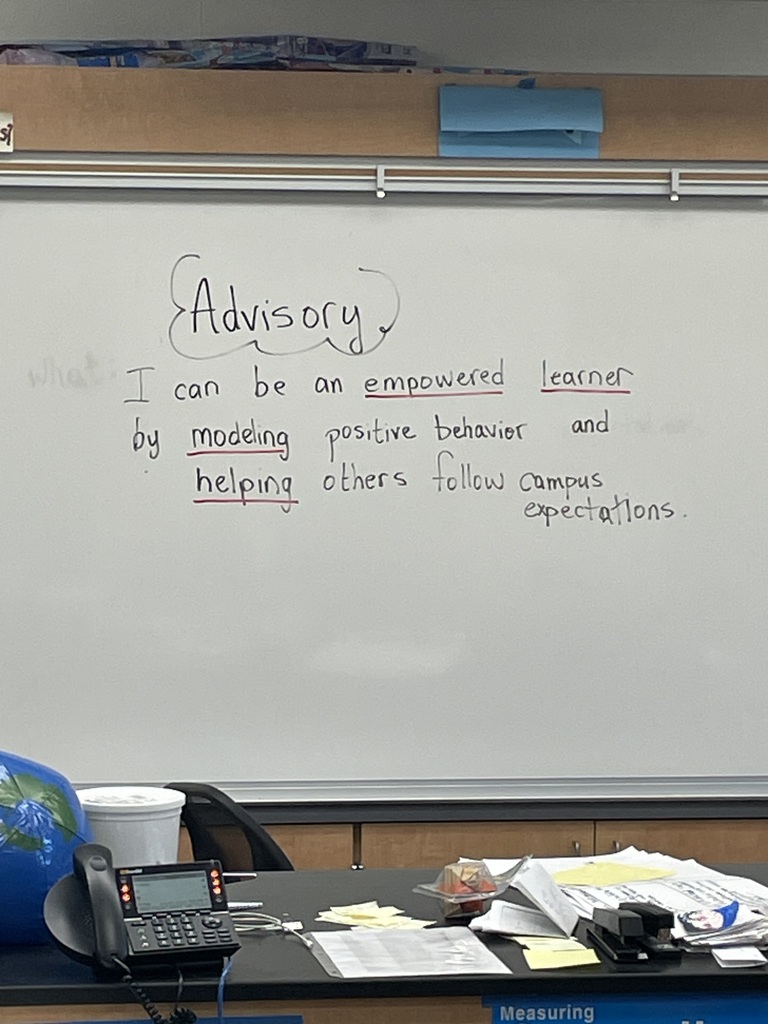 Advisory
I can be an empowered learner
by modeling positive behavior and
helping others follow campus
expectations.
Measuring